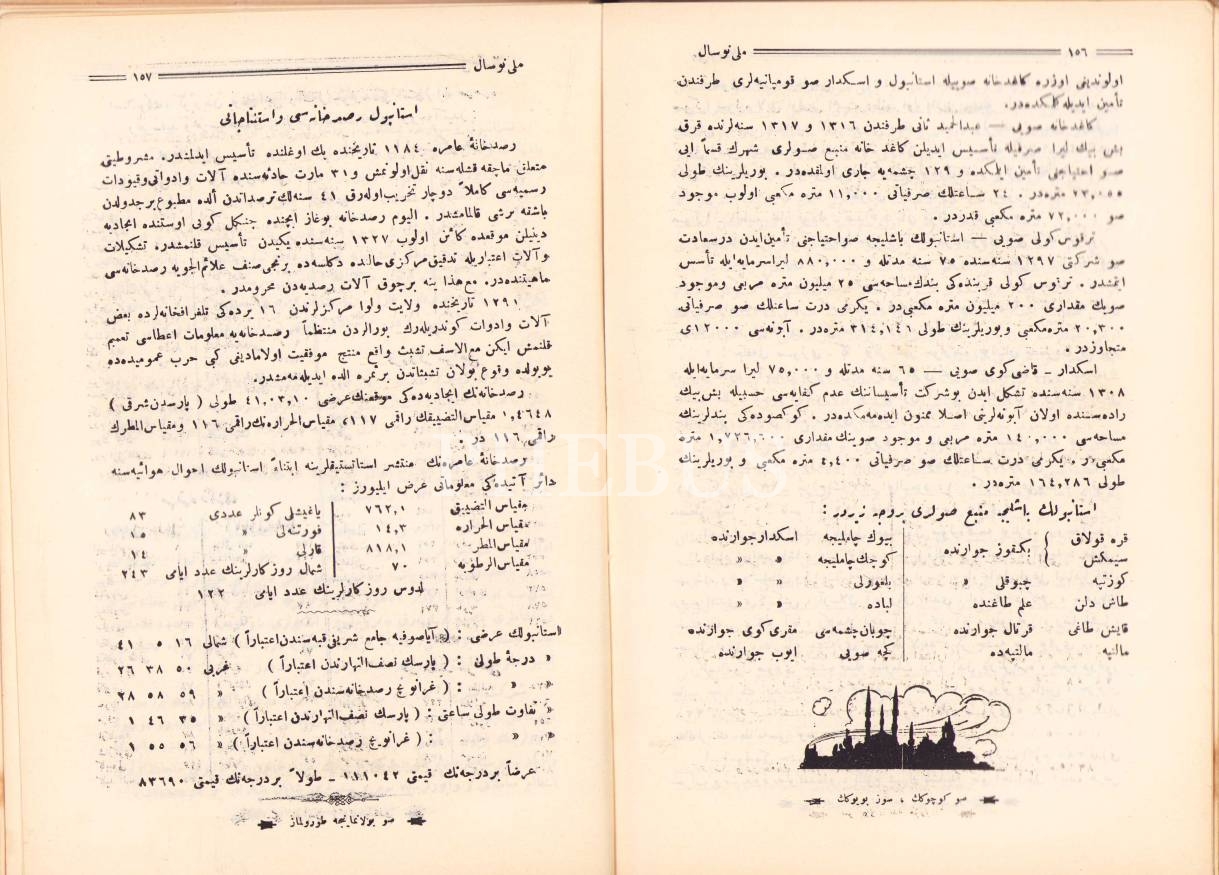 ١٥٦ ملی نوسال
اولوندیغی اوزره کاغدخانه صوییله استانبول و اسکدار صو قومپانیه‌لری طرفندن
تأمین ایدیله‌کلمکده‌در.
کاغدخانه صویی — عبدالحمید ثانی طرفندن ١٣١٦ و ١٣١٧ سنه‌لرنده قرق
بش بیك لیرا صرفیله تأسیس ایدیلن کاغد خانه منبع صولری شهرك قسماً ایی
صو احتیاجنی تأمین ایتمکده و ١٢٩ چشمه‌یه جاری اولمقده‌در. بوریلرینك طولی
متره‌در. ٢٤ ساعتلك صرفیاتی ١١,٠٠٠ متره مکعبی اولوب موجود
صو ٧٢,٠٠٠ متره مکعبی قدردر.
ترقوس کولی صویی — استانبولك باشلیجه صو احتیاجنی تأمین ایدن درسعادت
صو شرکتی ١٢٩٧ سنه‌سنده ٧٥ سنه مدتله و ٨٨٠,٠٠٠ لیرا سرمایه ایله تأسس
ایتمشدر. ترقوس کولی قربنده‌کی بندك مساحه‌سی ٢٥ میلیون متره مربعی وموجود
صویك مقداری ٢٠٠ میلیون متره مکعبی‌در. یکرمی درت ساعتلك صو صرفیاتی
٢٠,٣٠٠ متره‌مکعبی و بوریلرینك طولی ٣١٤,١٤١ متره‌در. آبونه‌سی ١٢٠٠٠ی
متجاوزدر.
اسکدار ـ قاضی‌کوی صویی — ٦٥ سنه مدتله و ٧٥,٠٠٠ لیرا سرمایه‌ایله
١٣٠٨ سنه‌سنده تشکل ایدن بوشرکت تأسیساتنك عدم کفایه‌سی حسبیله بش‌بیك
راده‌سنده اولان آبونه‌لرینی اصلا ممنون ایده‌مه‌مکده‌در. کوکصوده‌کی بندلرینك
مساحه‌سی ١٤٠,٠٠٠ متره مربعی و موجود صوینك مقداری متره
مکعبی‌در. یکرمی درت ساعتلك صو صرفیاتی ٤,٤٠٠ متره مکعبی و بوریلرینك
طولی ١٦٤,٢٨٦ متره‌در.
استانبولك باشلیجه منبع صولری بروجه زیردر :
قره قولاق } بکقوز جوارنده بیوك چاملیجه اسکدار جوارنده
سیمکش کوچك چاملیجه » »
کوزتپه چبوقلی » بلغورلی » »
طاش دلن علم طاغنده لباده » »
قایش طاغی قرتال جوارنده چوبان چشمه‌سی مقری کوی جوارنده
مالتپه مالتپه‌ده کچه صویی ایوب جوارنده
صو کوچوکك ، سوز بویوکك
ملی نوسال ١٥٧
استانبول رصدخانه‌سی و استنتاجاتی
رصدخانهٔ عامره ١١٨٤ تاریخنده بك اوغلنده تأسیس ایدلمشدر. مشروطیتی
متعاقب ماچقه قشله‌سنه نقل اولونمش و ٣١ مارت حادثه‌سنده آلات وادواتی وقیودات
رسمیه‌سی کاملاً دوچار تخریب اوله‌رق ٤١ سنه‌لك ترصداتدن الده مطبوع برجدولدن
باشقه برشی قالمامشدر. الیوم رصدخانه بوغاز ایچنده جنکل کویی اوستنده ایجادیه
دینیلن موقعده کائن اولوب ١٣٢٧ سنه‌سنده یکیدن تأسیس قلنمشدر. تشکیلات
وآلات اعتباریله تدقیق مرکزی حالنده دکلسه‌ده برنجی صنف علائم الجویه رصدخانه‌سی
ماهیتنده‌در. مع‌هذا ینه برچوق آلات رصدیه‌دن محرومدر.
١٢٩١ تاریخنده ولایت ولوا مرکزلرندن ١٦ یرده‌کی تلغرافخانه‌لرده بعض
آلات وادوات کوندریله‌رك بورالردن منتظماً رصدخانه‌یه معلومات اعطاسی تعمیم
قلنمش ایکن مع‌الاسف تشبث واقع منتج موفقیت اولامادیغی کبی حرب عمومیده‌ده
بویولده وقوع‌بولان تشبثاتدن برثمره الده ایدیله‌مه‌مشدر.
رصدخانه‌نك ایجادیه‌ده‌کی موقعنك عرضی ٤١,٠٣,١٠ طولی (پارسدن شرقی)
١,٤٦٤٨ مقیاس التضییقك راقمی ١١٧، مقیاس الحراره‌نك راقمی ١١٦ ومقیاس المطرك
راقمی ١١٦ در.
رصدخانهٔ عامره‌نك منتشر استاتستیقلرینه ابتناءً استانبولك احوال هوائیه‌سنه
دائر آتیده‌کی معلوماتی عرض ایلیورز :
مقیاس التضییق ٧٦٢,١ یاغیشلی کونلر عددی ٨٣
مقیاس الحراره ١٤,٣ فورتنه‌لی » ١٥
مقیاس المطر ٨١٨,١ قارلی » ١٤
مقیاس الرطوبه ٧٠ شمال روزکارلرینك عدد ایامی ٢٤٣
لدوس روزکارلرینك عدد ایامی ١٢٢
استانبولك عرضی : (آیاصوفیه جامع شریفی قبه‌سندن اعتباراً) شمالی ١٦ ٥ ٤١
» درجهٔ طولی : (پارسك نصف‌النهارندن اعتباراً) غربی ٥٠ ٣٨ ٢٦
» » : (غرانویچ رصدخانه‌سندن اعتباراً) » ٥٩ ٥٨ ٢٨
» تفاوت طولی ساعتی : (پارسك نصف‌النهارندن اعتباراً) » ٣٥ ٤٦ ١
» » : (غرانویچ رصدخانه‌سندن اعتباراً) » ٥٦ ٥٥ ١
عرضاً بردرجه‌نك قیمتی ١١١٠٤٢ ـ طولاً بردرجه‌نك قیمتی ٨٣٦٩٠
صو بولانمانجه طورولماز
PHEBUS